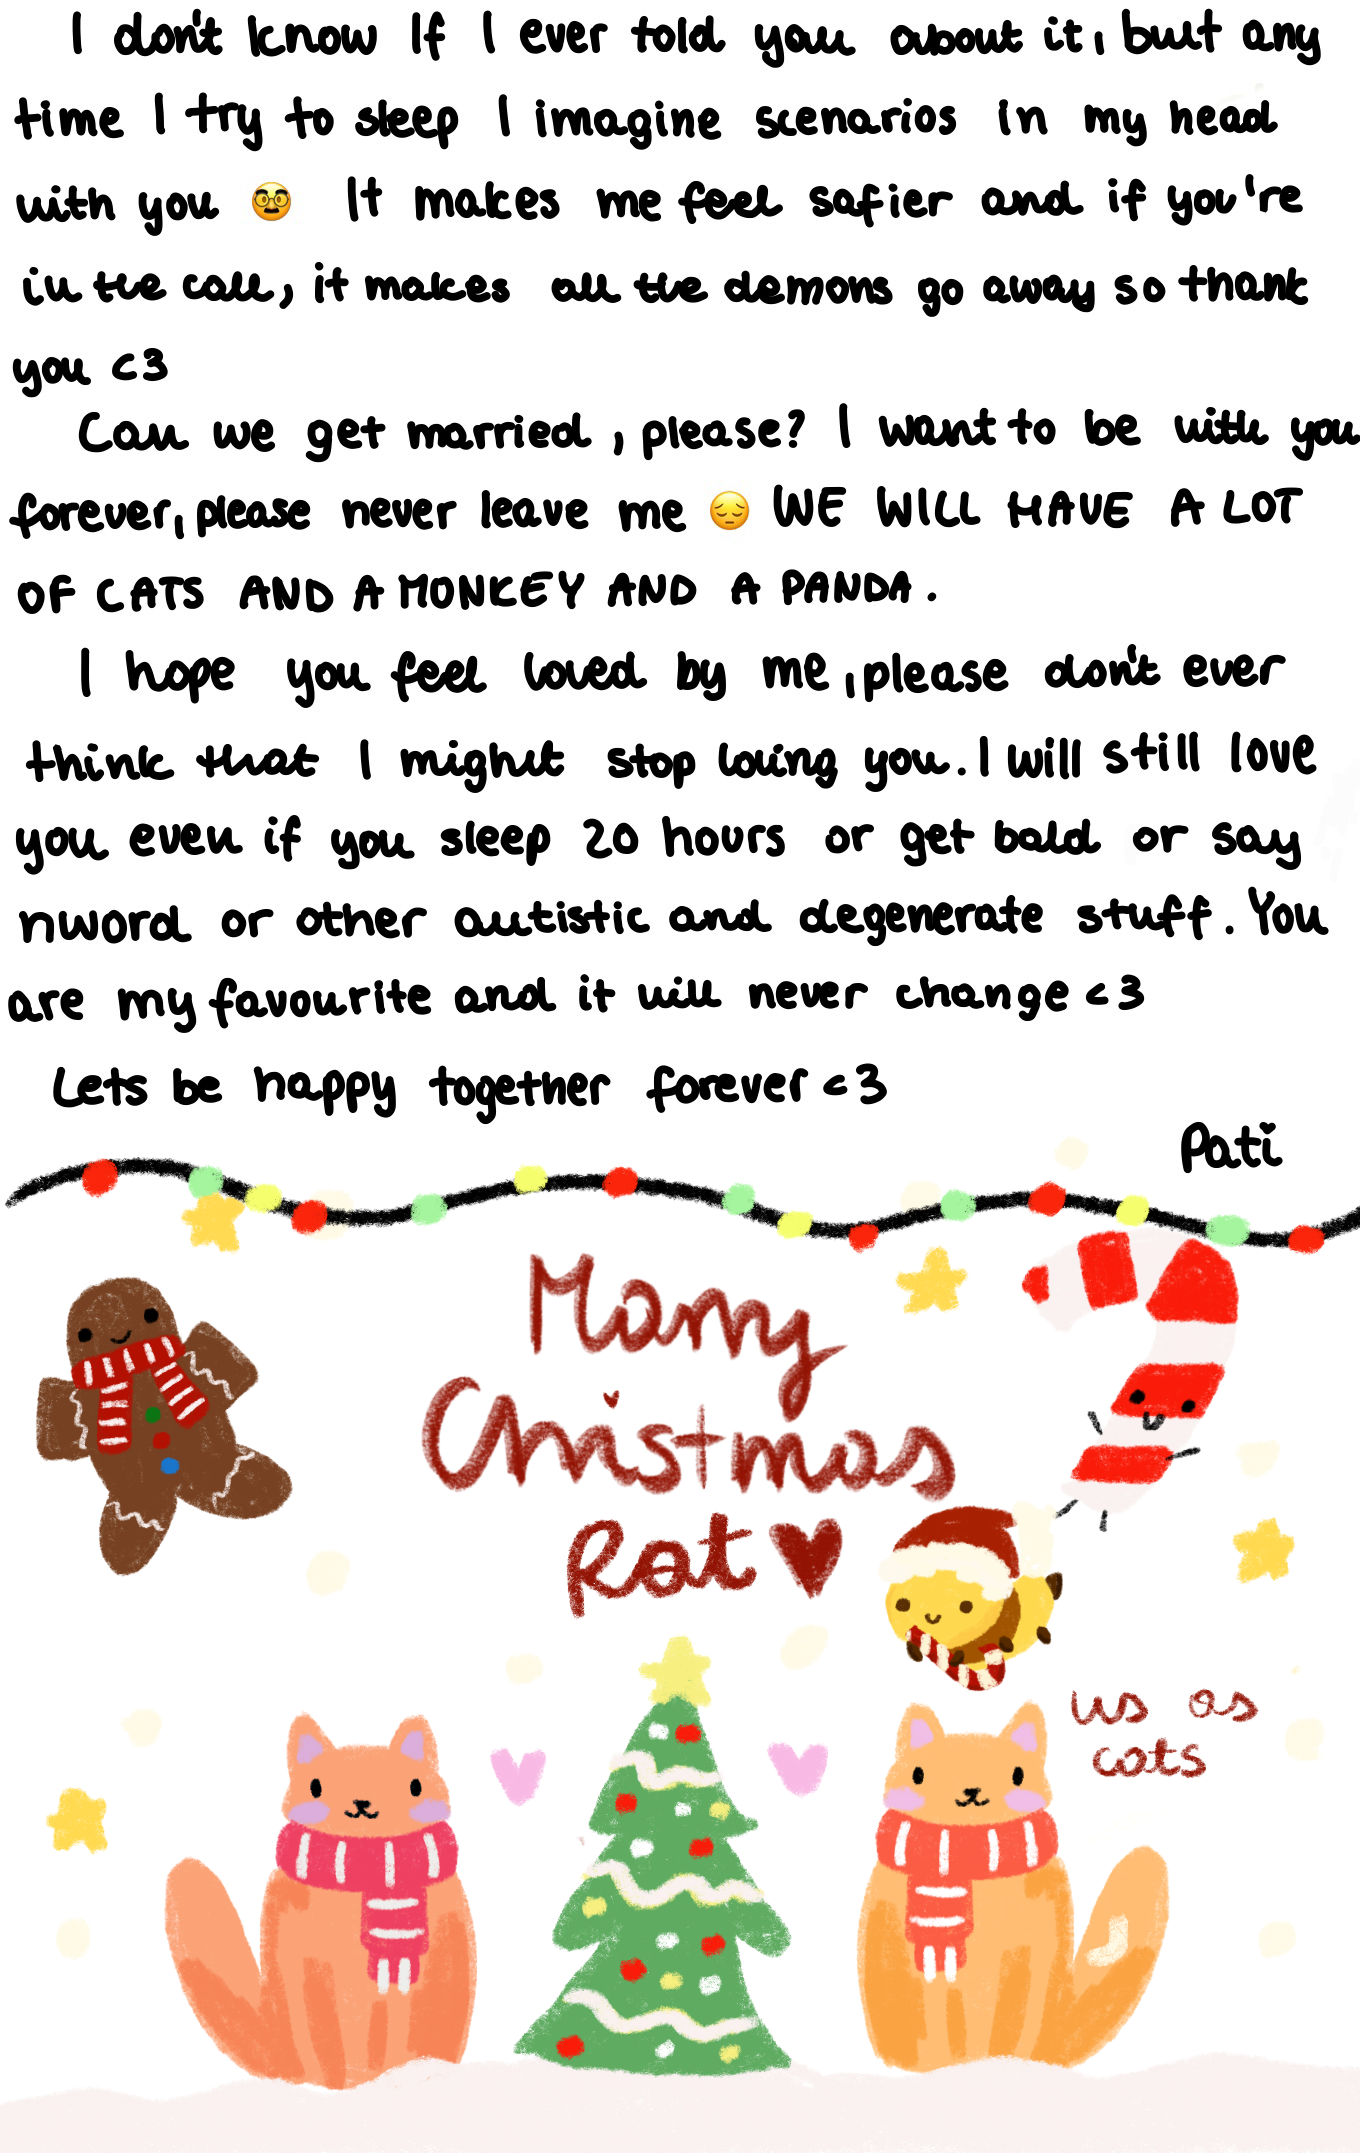 I don't know If I ever told you about it, but any
time I try to sleep I imagine scenarios in my head
with you 🥸 It makes me feel safier and if you're
in the call, it makes all the demons go away so thank
you <3
Can we get married, please? I want to be with you
forever, please never leave me 😔 WE WILL HAVE A LOT
OF CATS AND A MONKEY AND A PANDA.
I hope you feel loved by me, please don't ever
think that I might stop loving you. I will still love
you even if you sleep 20 hours or get bald or say
nword or other autistic and degenerate stuff. You
are my favourite and it will never change <3
Lets be happy together forever <3
Pati
Marry
Christmas
Rat ♥
us as
cats